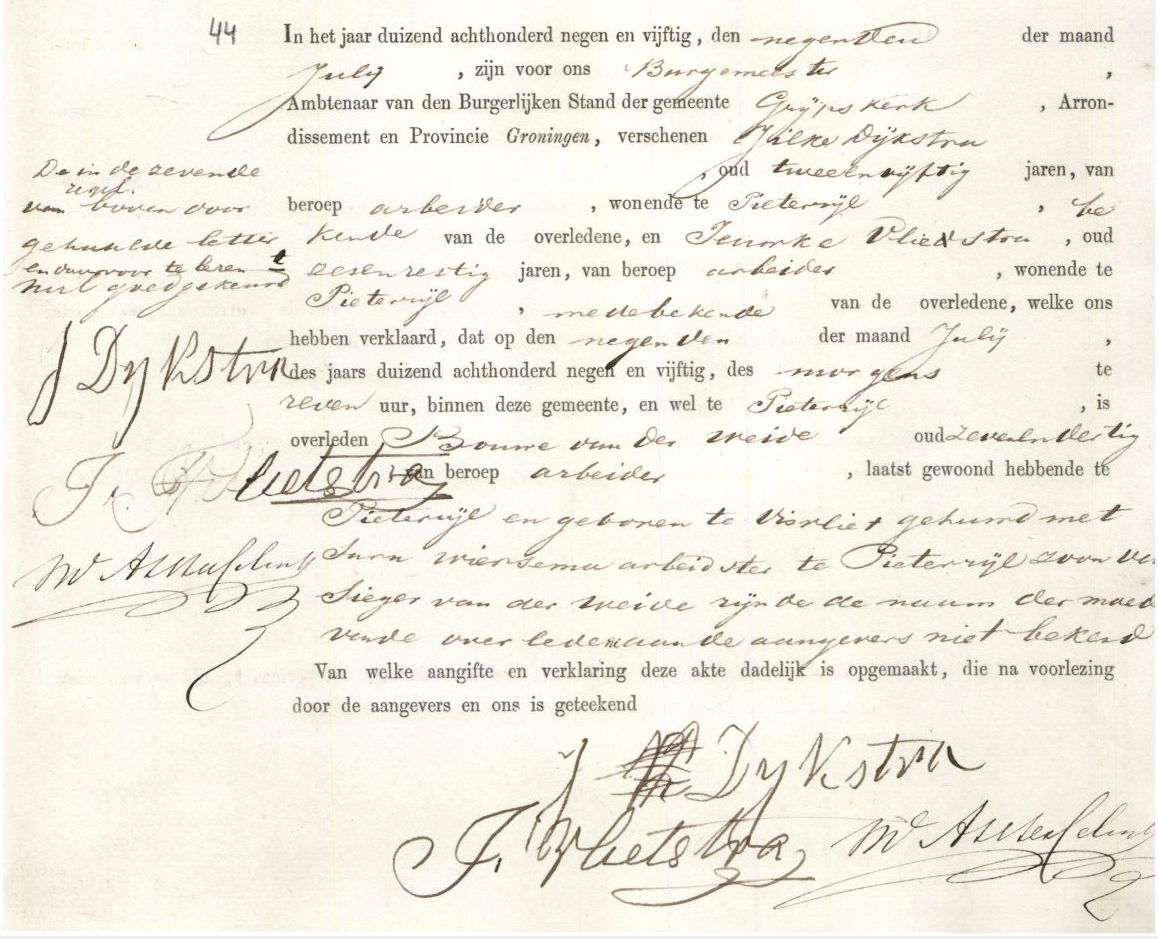 44
In het jaar duizend achthonderd negen en vijftig, den negenden der maand
July, zijn voor ons Burgemeester,
Ambtenaar van den Burgerlijken Stand der gemeente Grijpskerk, Arron-
dissement en Provincie Groningen, verschenen Jilke Dijkstra
, oud tweeenvijftig jaren, van
beroep arbeider, wonende te Pieterzijl, be
kende van de overledene, en Vliedstra, oud
zesenzestig jaren, van beroep arbeider, wonende te
Pieterzijl, medebekende van de overledene, welke ons
hebben verklaard, dat op den negenden der maand July,
des jaars duizend achthonderd negen en vijftig, des morgens te
zeven uur, binnen deze gemeente, en wel te Pieterzijl, is
overleden Bouwe van der Weide oud zevenendertig
van beroep arbeider, laatst gewoond hebbende te
Pieterzijl en geboren te Visvliet gehuwd met
Wiersema arbeidster te Pieterzijl zoon van
Sieger van der Weide zijnde de naam der moed
overledene aan de aangevers niet bekend
Van welke aangifte en verklaring deze akte dadelijk is opgemaakt, die na voorlezing
door de aangevers en ons is geteekend
De in de zevende
regel
van boven door
gehaalde letter t
en daarvoor te lezen
goedgekeurd
J Dykstra
J. Vlietstra
J Dykstra
J. Vlietstra